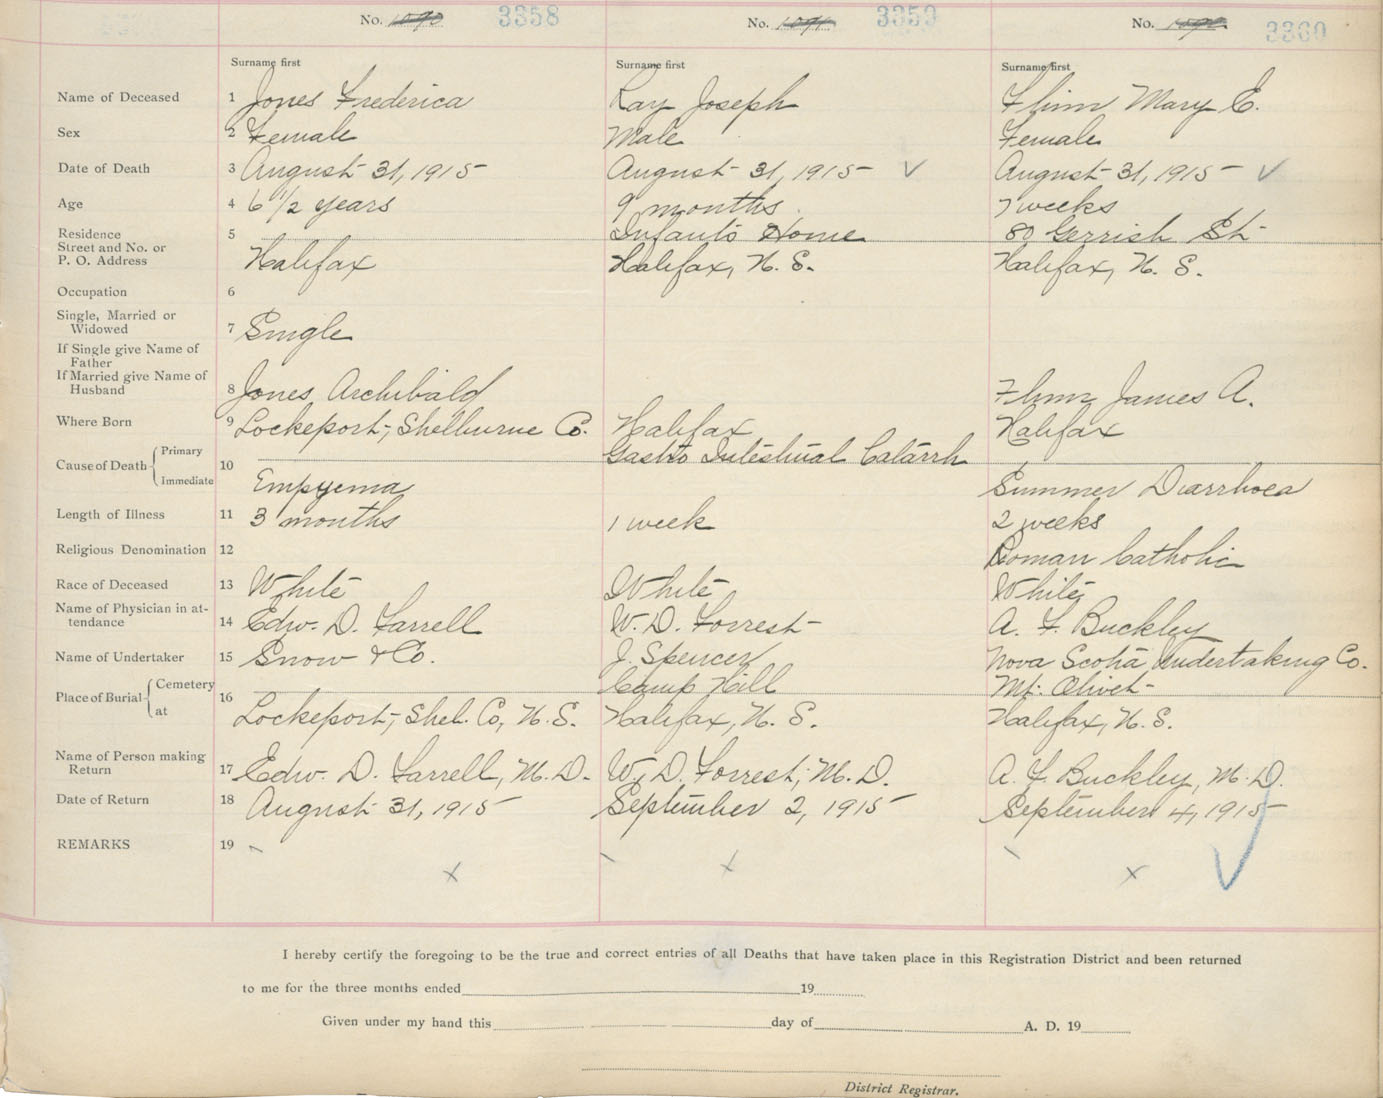 No. 1090 3358 No. 1091 3359 No. 1092 3360
Surname first Surname first Surname first
Name of Deceased 1 Jones Frederica Ray Joseph Flinn Mary E.
Sex 2 Female Male Female
Date of Death 3 August 31, 1915 August 31, 1915 ✓ August 31, 1915 ✓
Age 4 6 1/2 years 9 months 7 weeks
Residence 5 Infants Home 80 Gerrish St.
Street and No. or
P. O. Address Halifax Halifax, N. S. Halifax, N. S.
Occupation 6
Single, Married or
Widowed 7 Single
If Single give Name of
Father
If Married give Name of
Husband 8 Jones Archibald Flinn James A.
Where Born 9 Lockeport, Shelburne Co. Halifax Halifax
Cause of Death Primary 10 Gastro Intestinal Catarrh
Immediate Empyema Summer Diarrhoea
Length of Illness 11 3 months 1 week 2 weeks
Religious Denomination 12 Roman Catholic
Race of Deceased 13 White White White
Name of Physician in at-
tendance 14 Edw. D. Farrell W. D. Forrest A. F. Buckley
Name of Undertaker 15 Snow & Co. J. Spencer Nova Scotia Undertaking Co.
Place of Burial Cemetery 16 Camp Hill Mt. Olivet
at Lockeport, Shel. Co, N. S. Halifax, N. S. Halifax, N. S.
Name of Person making
Return 17 Edw. D. Farrell, M. D. W. D. Forrest, M. D. A. F. Buckley, M. D.
Date of Return 18 August 31, 1915 September 2, 1915 September 4, 1915
REMARKS 19
x x x ✓
I hereby certify the foregoing to be the true and correct entries of all Deaths that have taken place in this Registration District and been returned
to me for the three months ended 19
Given under my hand this day of A. D. 19
District Registrar.